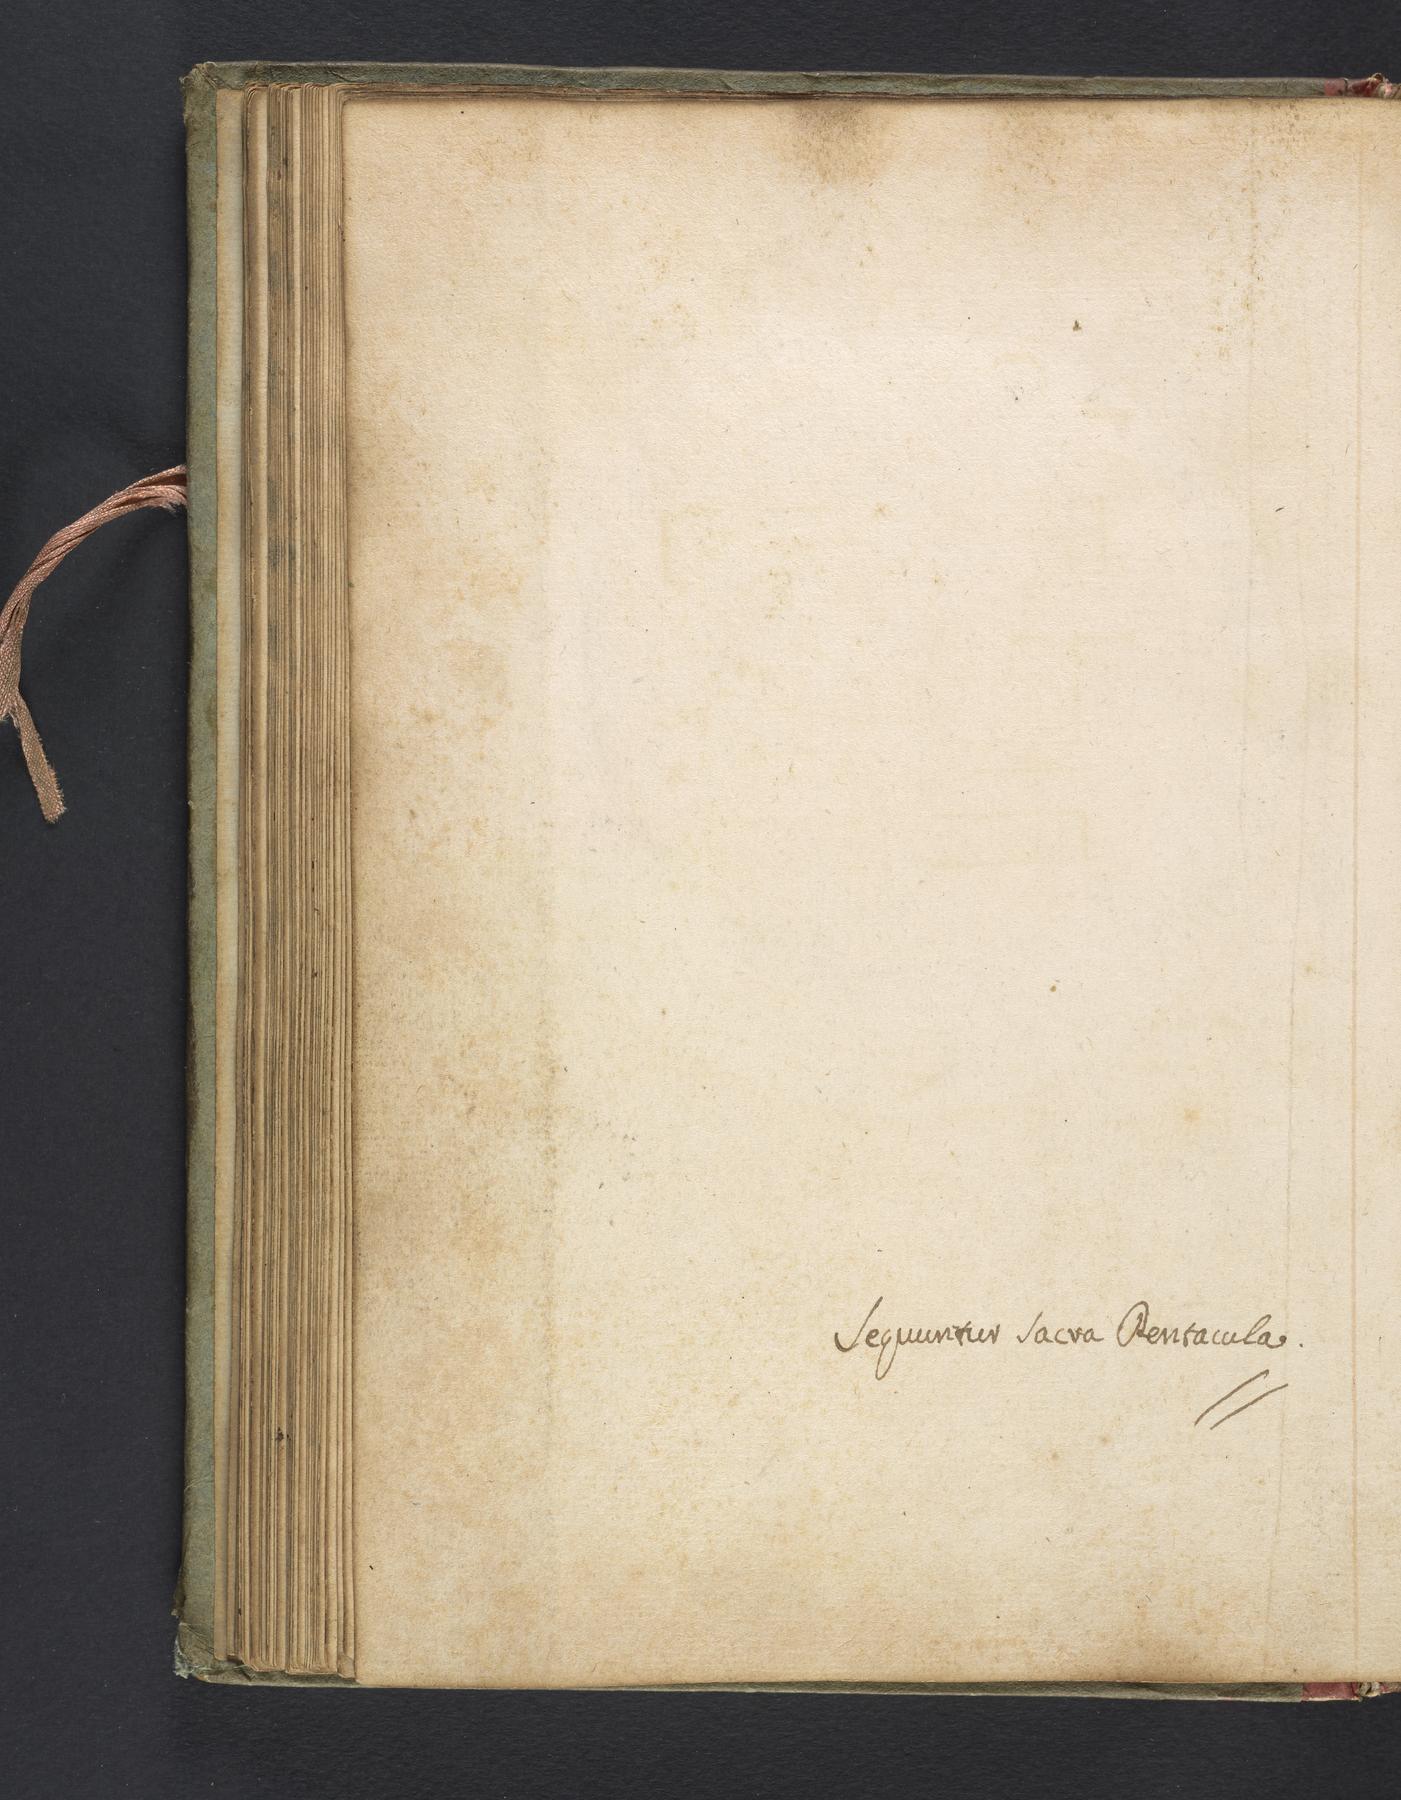 Sequuntur Sacra Pentacula.